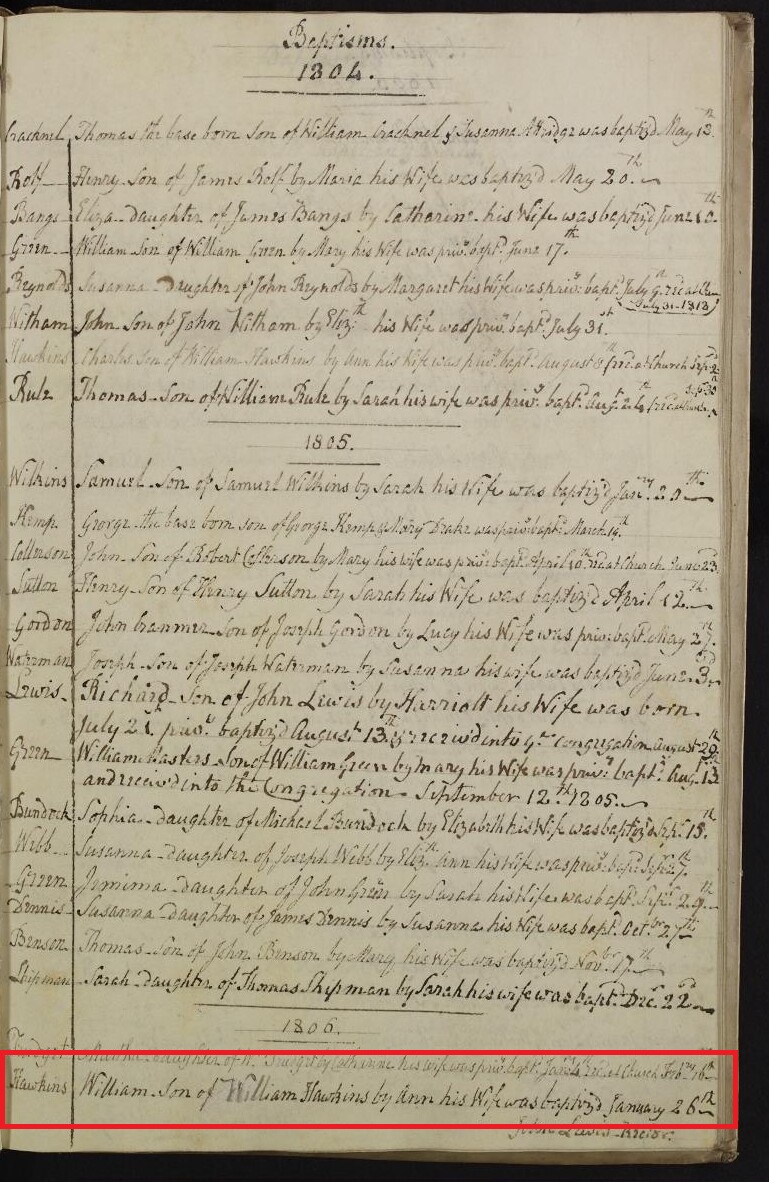 Baptisms.
1804.
Cracknel Thomas the base born Son of William Cracknel & Susanna was baptiz'd May 13th
Rolf Henry Son of James Rolf by Maria his Wife was baptiz'd May 20th
Bangs Eliza Daughter of James Bangs by Catharine his Wife was baptiz'd June 10th
Green William Son of William Green by Mary his Wife was priv: bapt. June 17th
Reynolds Susanna Daughter of John Reynolds by Margaret his Wife was priv: bapt. July 9th rec'd at Ch
July 31 1813)
Witham John Son of John Witham by Eliz:th his Wife was priv: bapt. July 31st
Hawkins Charles Son of William Hawkins by Ann his Wife was priv: bapt. August (rec'd at Church Sep.
Rule Thomas Son of William Rule by Sarah his wife was priv: bapt. Aug. 24th
1805.
Wilkins Samuel Son of Samuel Wilkins by Sarah his Wife was baptiz'd Jan:ry 20th
Kemp George the base born son of George Kemp & Mary Drake was priv: bapt. March
Collerson John Son of Robert Collerson by Mary his wife was priv: bapt. April 10th rec'd at Church June 23d
Sutton Henry Son of Henry Sutton by Sarah his Wife was baptiz'd April 12th
Gordon John Cranmer Son of Joseph Gordon by Lucy his Wife was priv: bapt. May 27th
Waterman Joseph Son of Joseph Waterman by Susanna his wife was baptiz'd June 3d
Lewis Richard Son of John Lewis by Harriott his Wife was born
July 21st priv: baptiz'd August 13th & receiv'd into ye congregation August 29th
Green William Masters Son of William Green by Mary his Wife was priv: bapt. Aug. 13th
and receiv'd into the Congregation September 12th 1805.
Bundock Sophia daughter of Michael Bundock by Elizabeth his Wife was baptiz'd Sep. 15th
Webb Susanna daughter of Joseph Webb by Eliz:th Ann his Wife was priv: bapt. Sep.
Green Jemima daughter of John Green by Sarah his Wife was bapt. Sep. 29th
Dennis Susanna daughter of James Dennis by Susanna his Wife was bapt. Octbr 27th
Benson Thomas Son of John Benson by Mary his Wife was baptiz'd Novbr 17th
Shipman Sarah daughter of Thomas Shipman by Sarah his wife was bapt. Dec. 22d
1806.
Martha daughter of Wm by Catharine his wife was priv: bapt. Jan. rec'd at Church Feb:ry 16th
Hawkins William Son of William Hawkins by Ann his Wife was baptiz'd January 26th
John Lewis Rector.